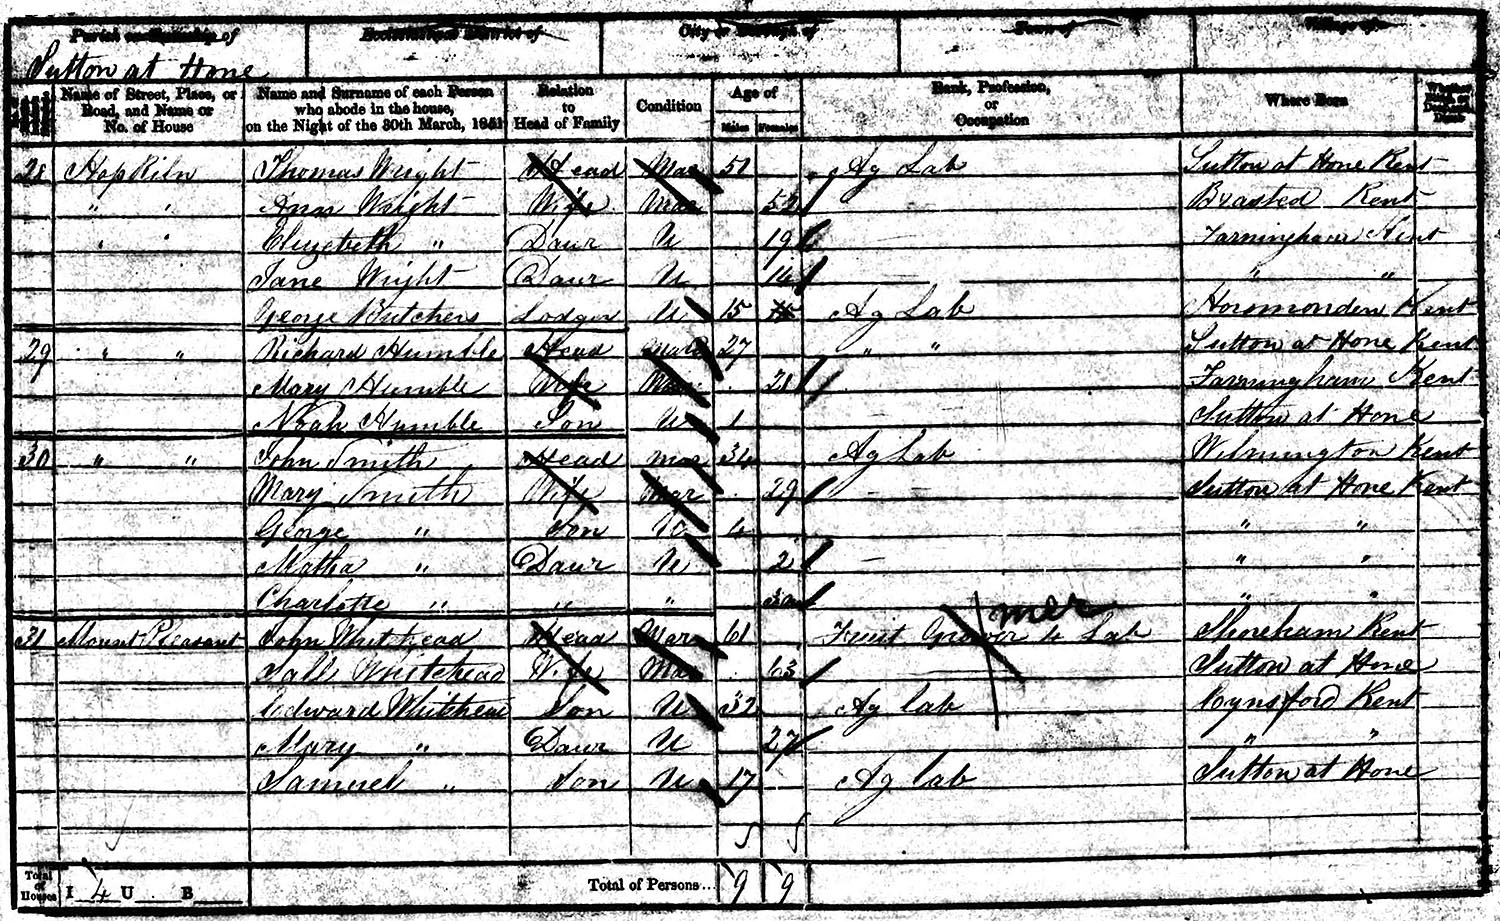 Parish or Township of Ecclesiastical District of City or Borough of Town of Village of
Sutton at Hone
Name of Street, Place, or Road, and Name or No. of House Name and Surname of each Person who abode in the house, on the Night of the 30th March, 1851 Relation to Head of Family Condition Age of Males Females Rank, Profession, or Occupation Where Born Whether Blind, or Deaf and Dumb
28 Hop Kiln Thomas Wright Head Mar 51 Ag Lab Sutton at Hone Kent
" " Ann Wright Wife Mar 52 Brasted Kent
" " Elizabeth " Daur U 19 — Farningham Kent
Jane Wright Daur U 14 — " "
George Butchers Lodger U 15 Ag Lab Horsmonden Kent
29 " " Richard Humble Head Mar 27 " " Sutton at Hone Kent
Mary Humble Wife Mar 21 Farningham Kent
Noah Humble Son U 1 Sutton at Hone
30 " " John Smith Head Mar 34 Ag Lab Wilmington Kent
Mary Smith Wife Mar 29 — Sutton at Hone Kent
George " Son U 4 " "
Matha " Daur U 2 — " "
Charlotte " " " " "
31 Mount Pleasant John Whitehead Head Mar 61 Fruit Grower & Lab Shoreham Kent
Whitehead Wife Mar 63 Sutton at Hone
Edward Whitehead Son U 32 Ag lab Eynsford Kent
Mary " Daur U 27 " "
Samuel " Son U 17 Ag lab Sutton at Hone
Total of Houses I 4 U B Total of Persons... 9 9